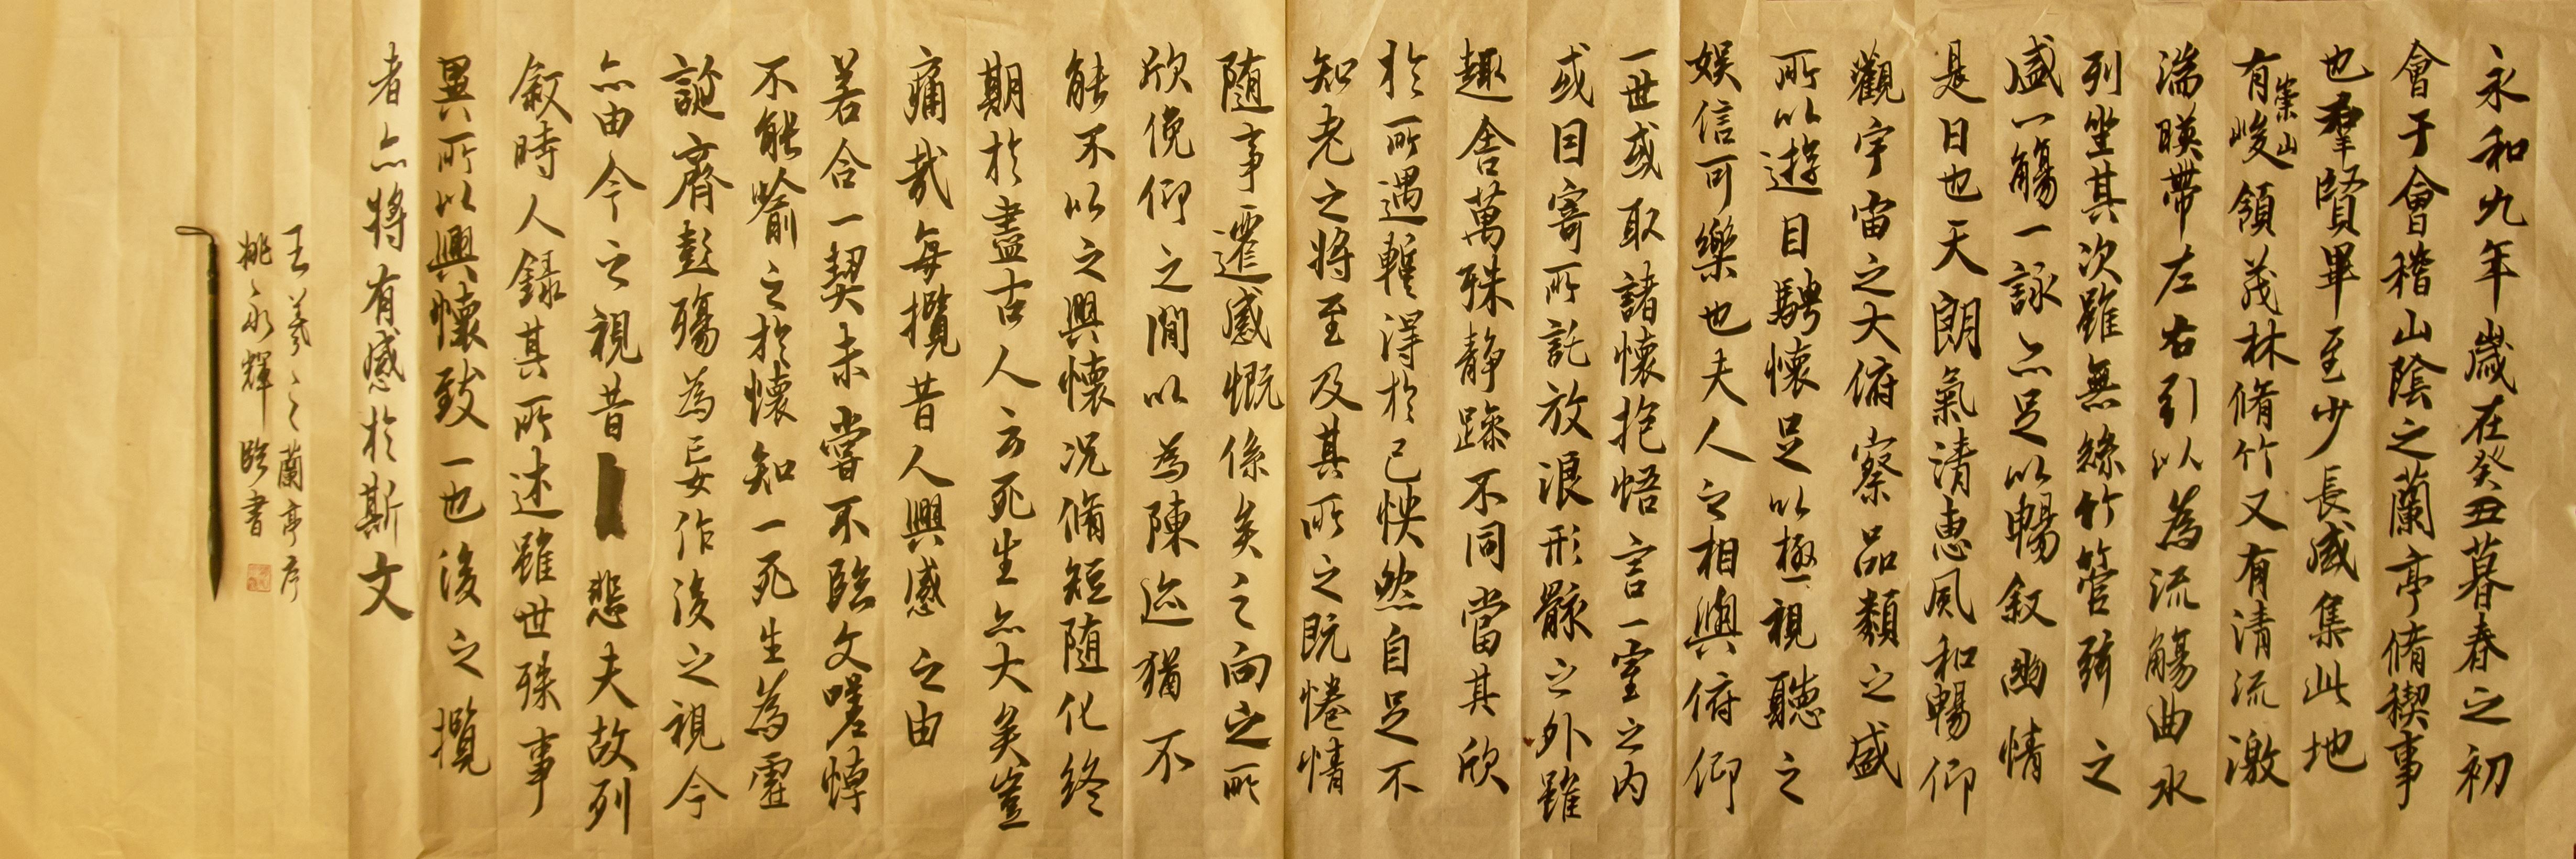 永和九年歲在癸丑暮春之初
會于會稽山陰之蘭亭脩稧事
也羣賢畢至少長咸集此地
有崇山峻領茂林脩竹又有清流激
湍暎帶左右引以為流觴曲水
列坐其次雖無絲竹管弦之
盛一觴一詠亦足以暢叙幽情
是日也天朗氣清惠風和暢仰
觀宇宙之大俯察品類之盛
所以遊目騁懷足以極視聽之
娛信可樂也夫人之相與俯仰
一世或取諸懷抱悟言一室之內
或因寄所託放浪形骸之外雖
趣舍萬殊靜躁不同當其欣
於所遇暫得於己怏然自足不
知老之將至及其所之既惓情
隨事遷感慨係矣之向之所
欣俛仰之閒以為陳迹猶不
能不以之興懷况脩短隨化終
期於盡古人云死生亦大矣豈
痛哉每攬昔人興感之由
若合一契未嘗不臨文嗟悼
不能喻之於懷知一死生為虛
誕齊彭殤為妄作後之視今
亦由今之視昔悲夫故列
叙時人錄其所述雖世殊事
異所以興懷致一也後之攬
者亦將有感於斯文
王羲之蘭亭序
姚永輝臨書